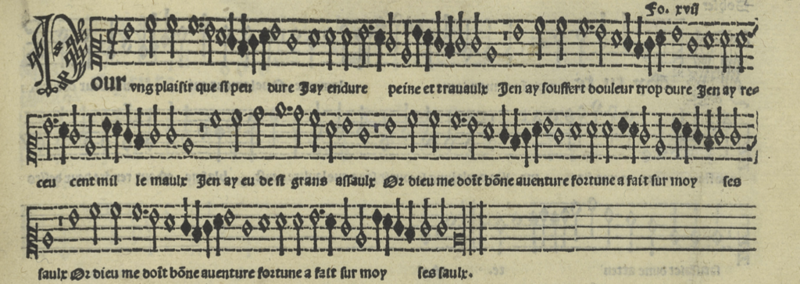 Fo. xvii
Pour vng plaisir que si peu dure Jay endure peine et trauaulx Jen ay souffert douleur trop dure Jen ay re-
ceu cent mil le maulx Jen ay eu de si grans assaulx Or dieu me doīt bōne auenture fortune a fait sur moy ses
saulx Or dieu me doīt bōne auenture fortune a fait sur moy ses saulx.